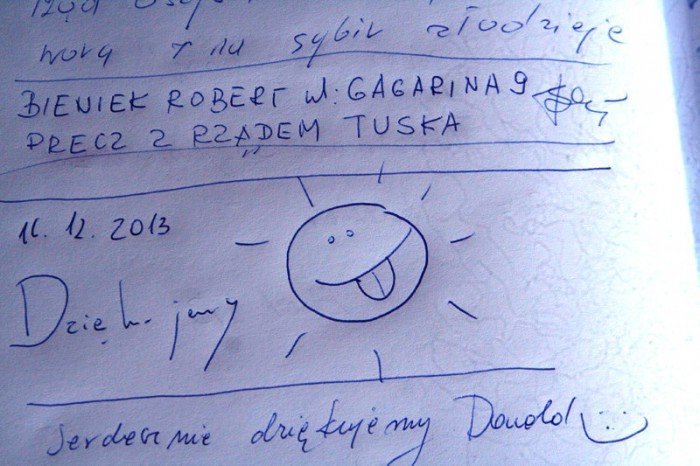 na sybir złodzieje
BIENIEK ROBERT ul. GAGARINA 9
PRECZ Z RZĄDEM TUSKA
16.12.2013
Dziękujemy
Serdecznie dziękujemy Donald